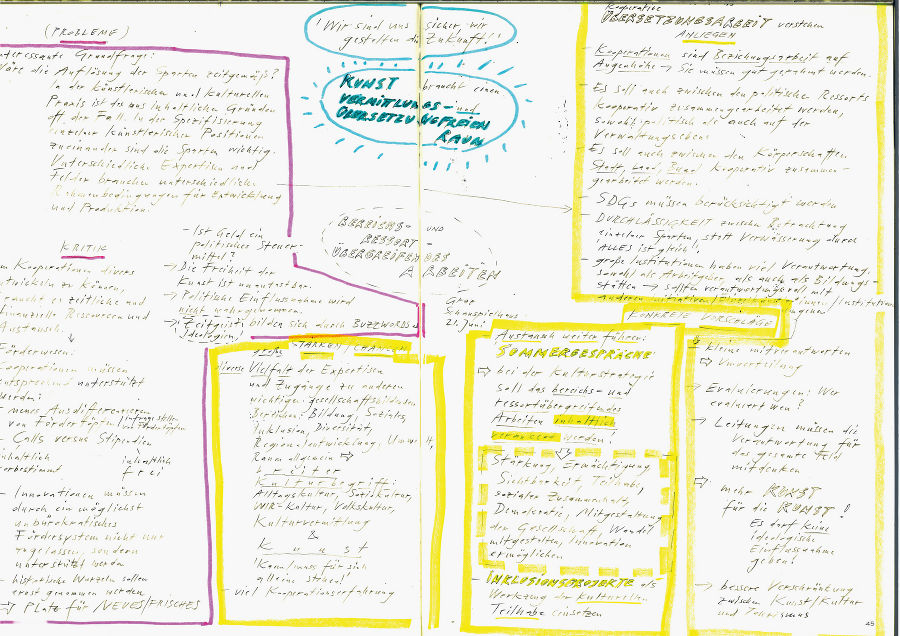 (PROBLEME)
Interessante Grundfrage:
Wäre die Auflösung der Sparten zeitgemäß?
In der künstlerischen und kulturellen
Praxis ist das aus inhaltlichen Gründen
oft der Fall. In der Spezifizierung
einzelner künstlerischer Positionen
zueinander sind die Sparten wichtig.
Unterschiedliche Expertisen und
Felder brauchen unterschiedliche
Rahmenbedingungen für Entwicklung
und Produktion.
KRITIK
Um Kooperationen divers
entwickeln zu können,
braucht es zeitliche und
finanzielle Ressourcen und
Austausch.
Förderwesen:
Kooperationen müssen
entsprechend unterstützt
werden:
neues Ausdifferenzieren
von Fördertöpfen
- Calls versus Stipendien
inhaltlich inhaltlich
vorbestimmt frei
- Innovationen müssen
durch ein möglichst
unbürokratisches
Fördersystem nicht nur
zugelassen, sondern
unterstützt werden
- historische Wurzeln sollen
ernst genommen werden
⇒ Platz für NEUES/FRISCHES
- Ist Geld ein
politisches Steuer-
mittel?
→ Die Freiheit der
Kunst ist unantastbar.
→ Politische Einflussnahme wird
nicht wahrgenommen.
→ Zeitgeist bilden sich durch BUZZWORDS ab
Ideologien,
STÄRKEN/CHANCEN
große
diverse Vielfalt der Expertisen
und Zugänge zu anderen
wichtigen gesellschaftsbildenden
Bereichen: Bildung, Soziales,
Inklusion, Diversität,
Regionalentwicklung, Umwelt,
Raum allgemein ⇒
breiter
Kulturbegriff:
Alltagskultur, Soziokultur,
WIR-Kultur, Volkskultur,
Kulturvermittlung
&
Kunst
! Kann/muss für sich
alleine stehen!
- viel Kooperationserfahrung
"Wir sind uns sicher, wir
gestalten die Zukunft!"
KUNST braucht einen
VERMITTLUNGS- und
ÜBERSETZUNGSFREIEN
RAUM
BEREICHS- UND
RESSORT-
ÜBERGREIFENDES
ARBEITEN
Graz
Schauspielhaus
21. Juni
Austausch weiter führen:
SOMMERGESPRÄCHE
⇒ bei der Kulturstrategie
soll das bereichs- und
ressortübergreifendes
Arbeiten inhaltlich
verankert werden!
Stärkung, Ermächtigung
Sichtbarkeit, Teilhabe,
sozialer Zusammenhalt,
Demokratie, Mitgestaltung
der Gesellschaft, Wandel
mitgestalten, Innovation
ermöglichen
- INKLUSIONSPROJEKTE als
Werkzeug der kulturellen
Teilhabe einsetzen
Kooperative
ÜBERSETZUNGSARBEIT verstehen
ANLIEGEN
- Kooperationen sind Beziehungsarbeit auf
Augenhöhe → Sie müssen gut gerahmt werden.
- Es soll auch zwischen den politische Ressorts
kooperativ zusammengearbeitet werden,
sowohl politisch als auch auf der
Verwaltungsebene
- Es soll auch zwischen den Körperschaften
Stadt, Land, Bund kooperativ zusammen-
gearbeitet werden.
- SDGs müssen berücksichtigt werden
- DURCHLÄSSIGKEIT zwische Betrachtung
einzelner Sparten, statt Verwässerung durch
"ALLES ist gleich"
- große Institutionen haben viel Verantwortung,
sowohl als Arbeitgeber, als auch als Bildungs-
stätten → sollten verantwortungsvoll mit
anderen Initiativen
KONKRETE VORSCHLÄGE
- kleine mitverantworten
⇒ Umverteilung
→ Evaluierungen: Wer
evaluiert wen?
→ Leitungen müssen die
Verantwortung für
das gesamte Feld
mitdenken
⇒ mehr KUNST
für die KUNST!
Es darf keine
ideologische
Einflussnahme
geben!
→ bessere Verschränkung
zwischen Kunst/Kultur
und Tourismus
45